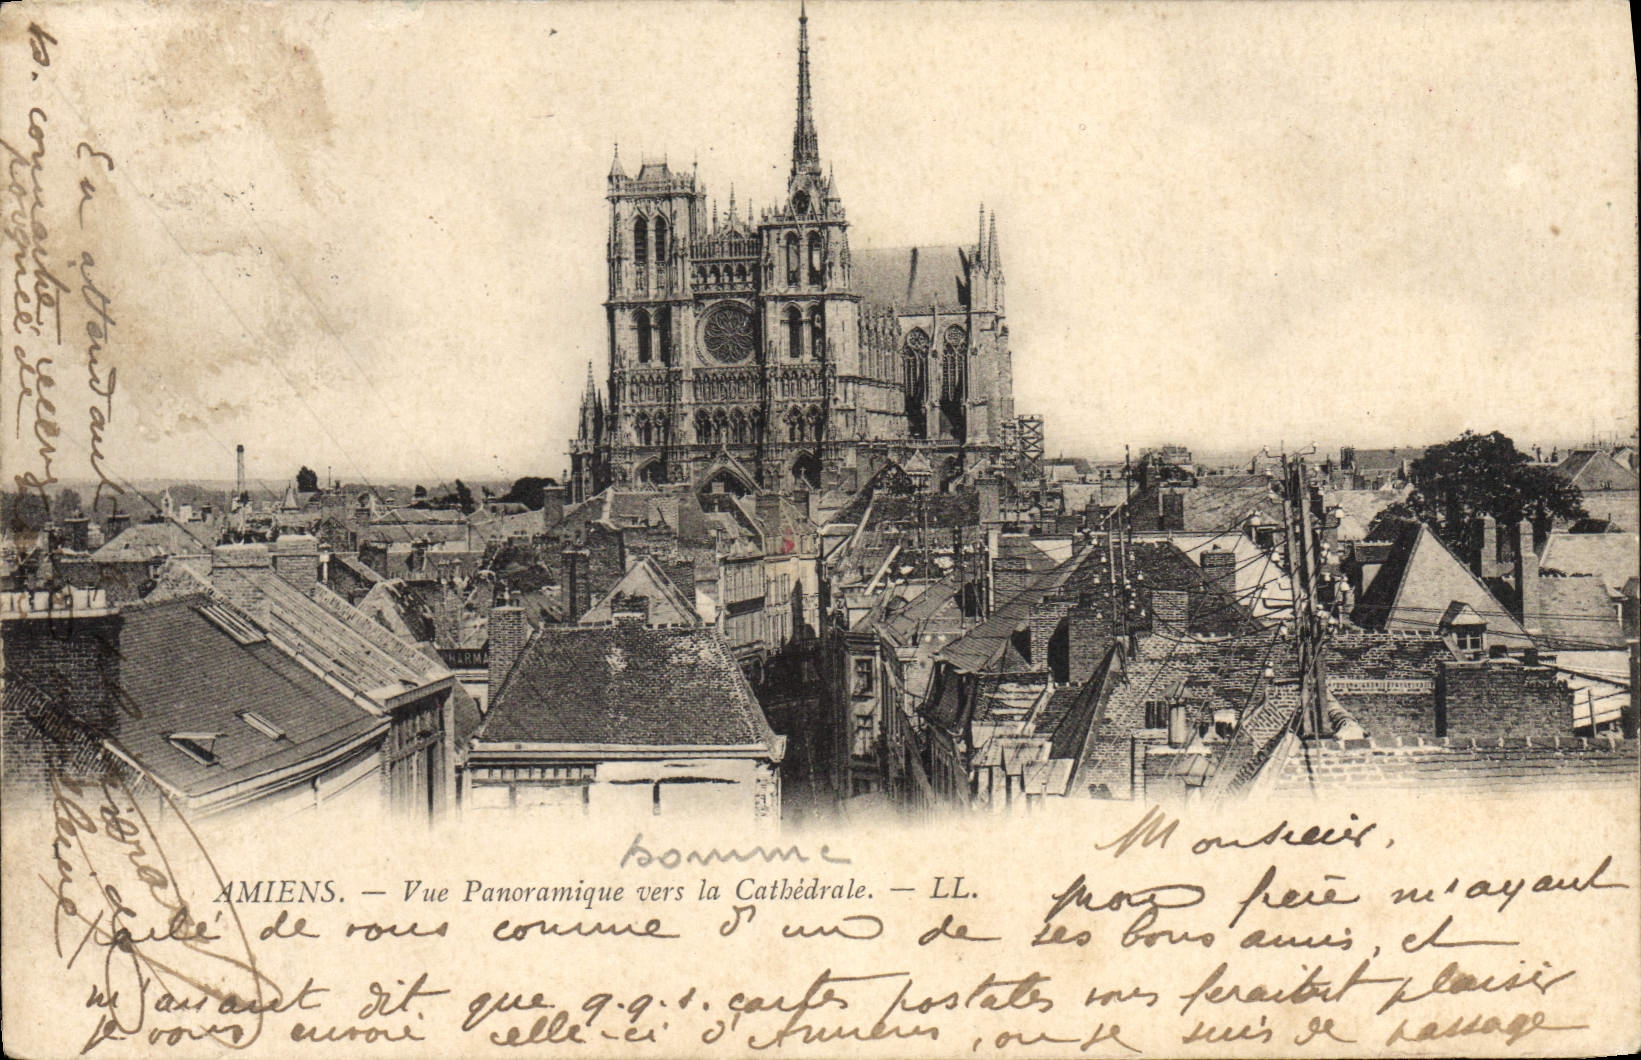 HARMA
Somme
AMIENS. — Vue Panoramique vers la Cathédrale. — LL.
Monsieur,
Mon frère m'ayant
parlé de vous comme d'un de ses bons amis, et
m'ayant dit que q.q.s. cartes postales vous feraient plaisir
je vous envoie celle-ci d'Amiens, ou je suis de passage
En attendant
connaître, recevez
poignée de